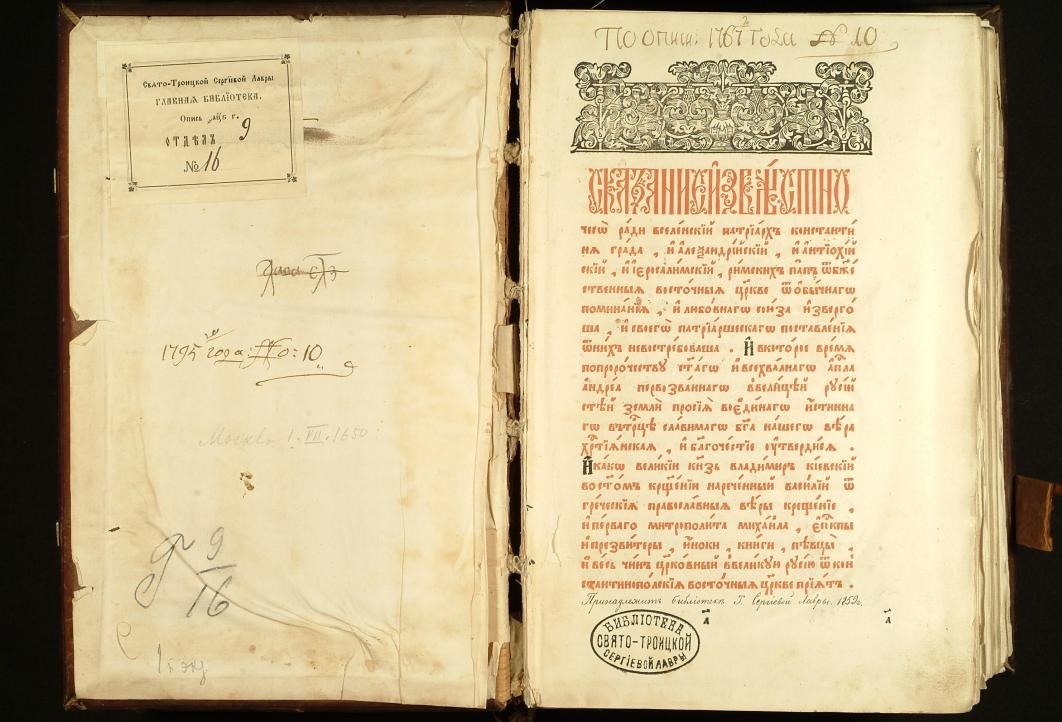 Свѧто-Троицкой Сергїевой Лавры
ГЛАВНАЯ БИБЛЇОТЕКА.
Опись г.
ОТДѢЛЪ 9
№ 16
1795 года № 10
Москва 1.VII.1650
9
16
1й экз
По описи: 1767 года № 10
СКАЗАНИЕ И҆ЗВѢ́СТНО
чесѡ̀ ра́ди вселе́нскїй патрїа́рхъ константи
нѧ гра́да , и҆ а҆леѯандрі́йскїй , и҆ а҆нтїохі́й
скїй , и҆ і҆ерⷭ҇али́мскїй , ри́мскихъ па́пъ ѿ бж҃е
ственныѧ восто́чныѧ цр҃кве ѿ ѻ҆бы́чнагѡ
помина́нїѧ , и҆ любо́внагѡ сою́за и҆зверго́
ша , и҆ своегѡ̀ патрїа́ршескагѡ поставле́нїѧ
ѿ ни́хъ невостре́боваша . И҆ в кото́рое вре́мѧ
по проро́честву ст҃а́гѡ и҆ всехва́лнагѡ а҆пⷭ҇ла
а҆ндре́а первозва́ннагѡ в вели́цѣй русі́й
стѣ́й землѝ просїѧ̀ во є҆ди́нагѡ и҆́стинна
гѡ в трⷪ҇цѣ сла́вимагѡ бг҃а на́шегѡ вѣ́ра
хрⷭ҇тїѧ́нскаѧ , и҆ бл҃гоче́стїе ѹ҆тверди́сѧ .
И҆ ка́кѡ вели́кїи кн҃зь влади́миръ кі́евскїй
во ст҃о́мъ крⷳ҇е́нїи нарече́нный васи́лїй ѿ
гре́ческїѧ правосла́вныѧ вѣ́ры креще́нїе ,
и҆ пе́рваго митрополи́та михаи́ла , є҆пⷭ҇кпы
и҆ презви́теры , и҆́ноки , кни́ги , пѣвцы̀ ,
и҆ ве́сь чи́нъ цр҃ко́вный в вели́кую русі́ю ѿ кон
стантинопо́лскїѧ восто́чныѧ цр҃кве прїѧ́тъ .
Принадлежитъ библіотекѣ Т. Сергіевой Лавры. 1859 г.
БИБЛІОТЕКА
СВЯТО-ТРОИЦКОЙ
СЕРГІЕВОЙ ЛАВРЫ